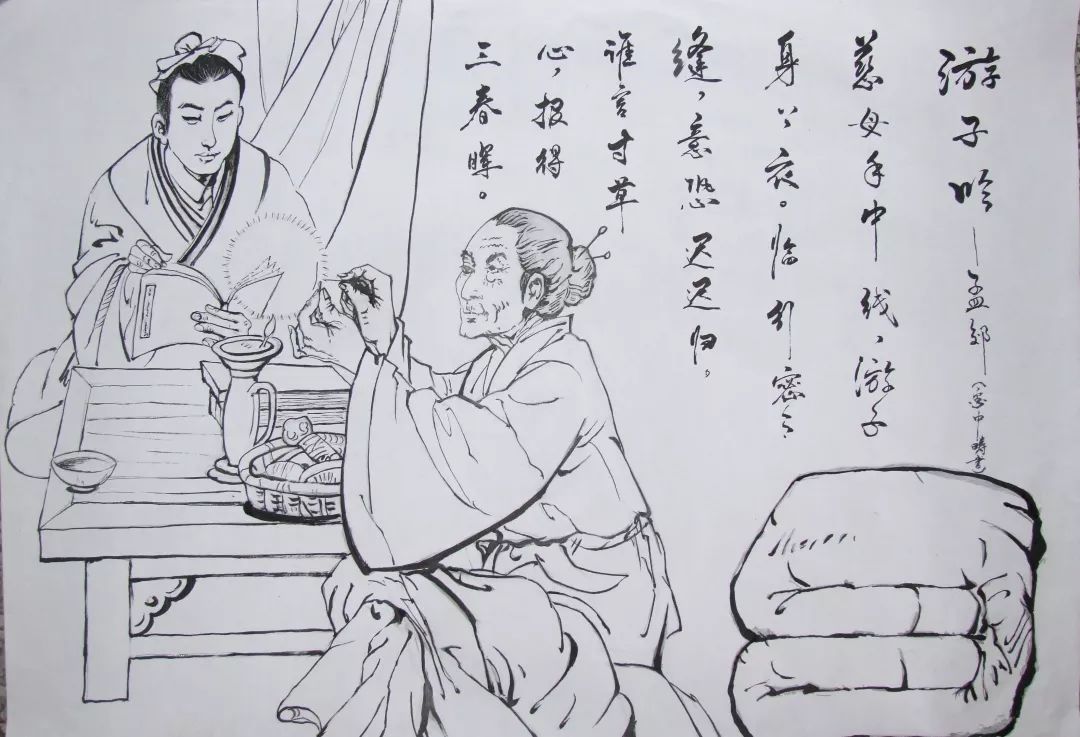 游子吟——孟郊
慈母手中线，游子
身上衣。临行密〻
缝，意恐迟迟归。
谁言寸草
心，报得
三春晖。